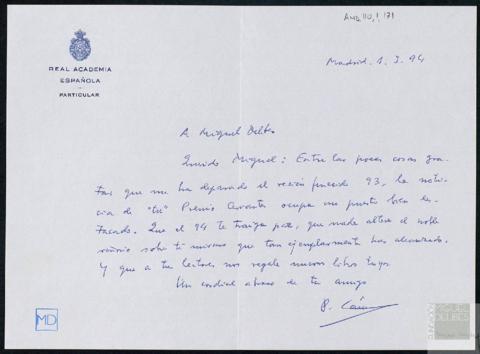 AMD, 110, 1, 171
REAL ACADEMIA
ESPAÑOLA
PARTICULAR
Madrid. 1. 3. 94
A Miguel Delibes
Querido Miguel: Entre las pocas cosas gra-
tas que me ha deparado el recién fenecido 93, la noti-
cia de "tu" Premio Cervantes ocupa un puesto bien des-
tacado. Que el 94 te traiga paz, que nada altere el noble
señorío sobre ti mismo que tan ejemplarmente has alcanzado.
Y que a tus lectores nos regale nuevos libros tuyos.
Un cordial abrazo de tu amigo
P.
MD
FUNDACIÓN
MIGUEL
DELIBES